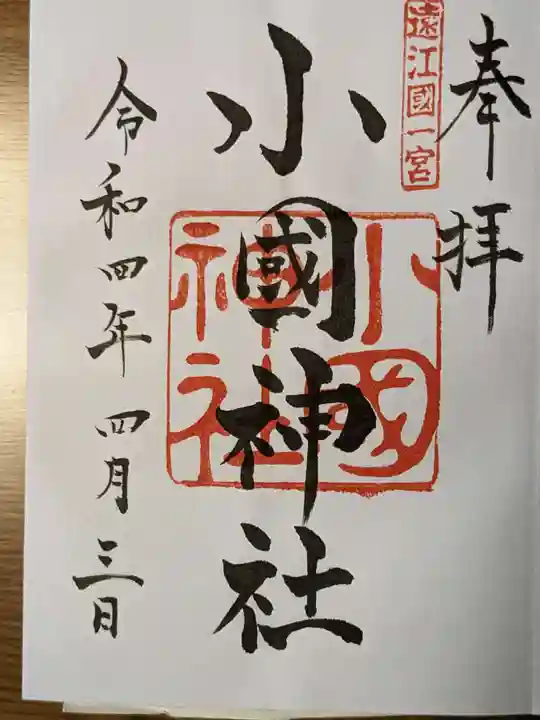 奉拝
遠江國一宮
小國神社
小國神社
令和四年四月三日